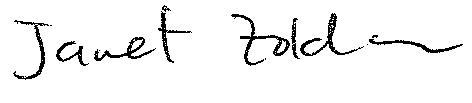 Janet Zold